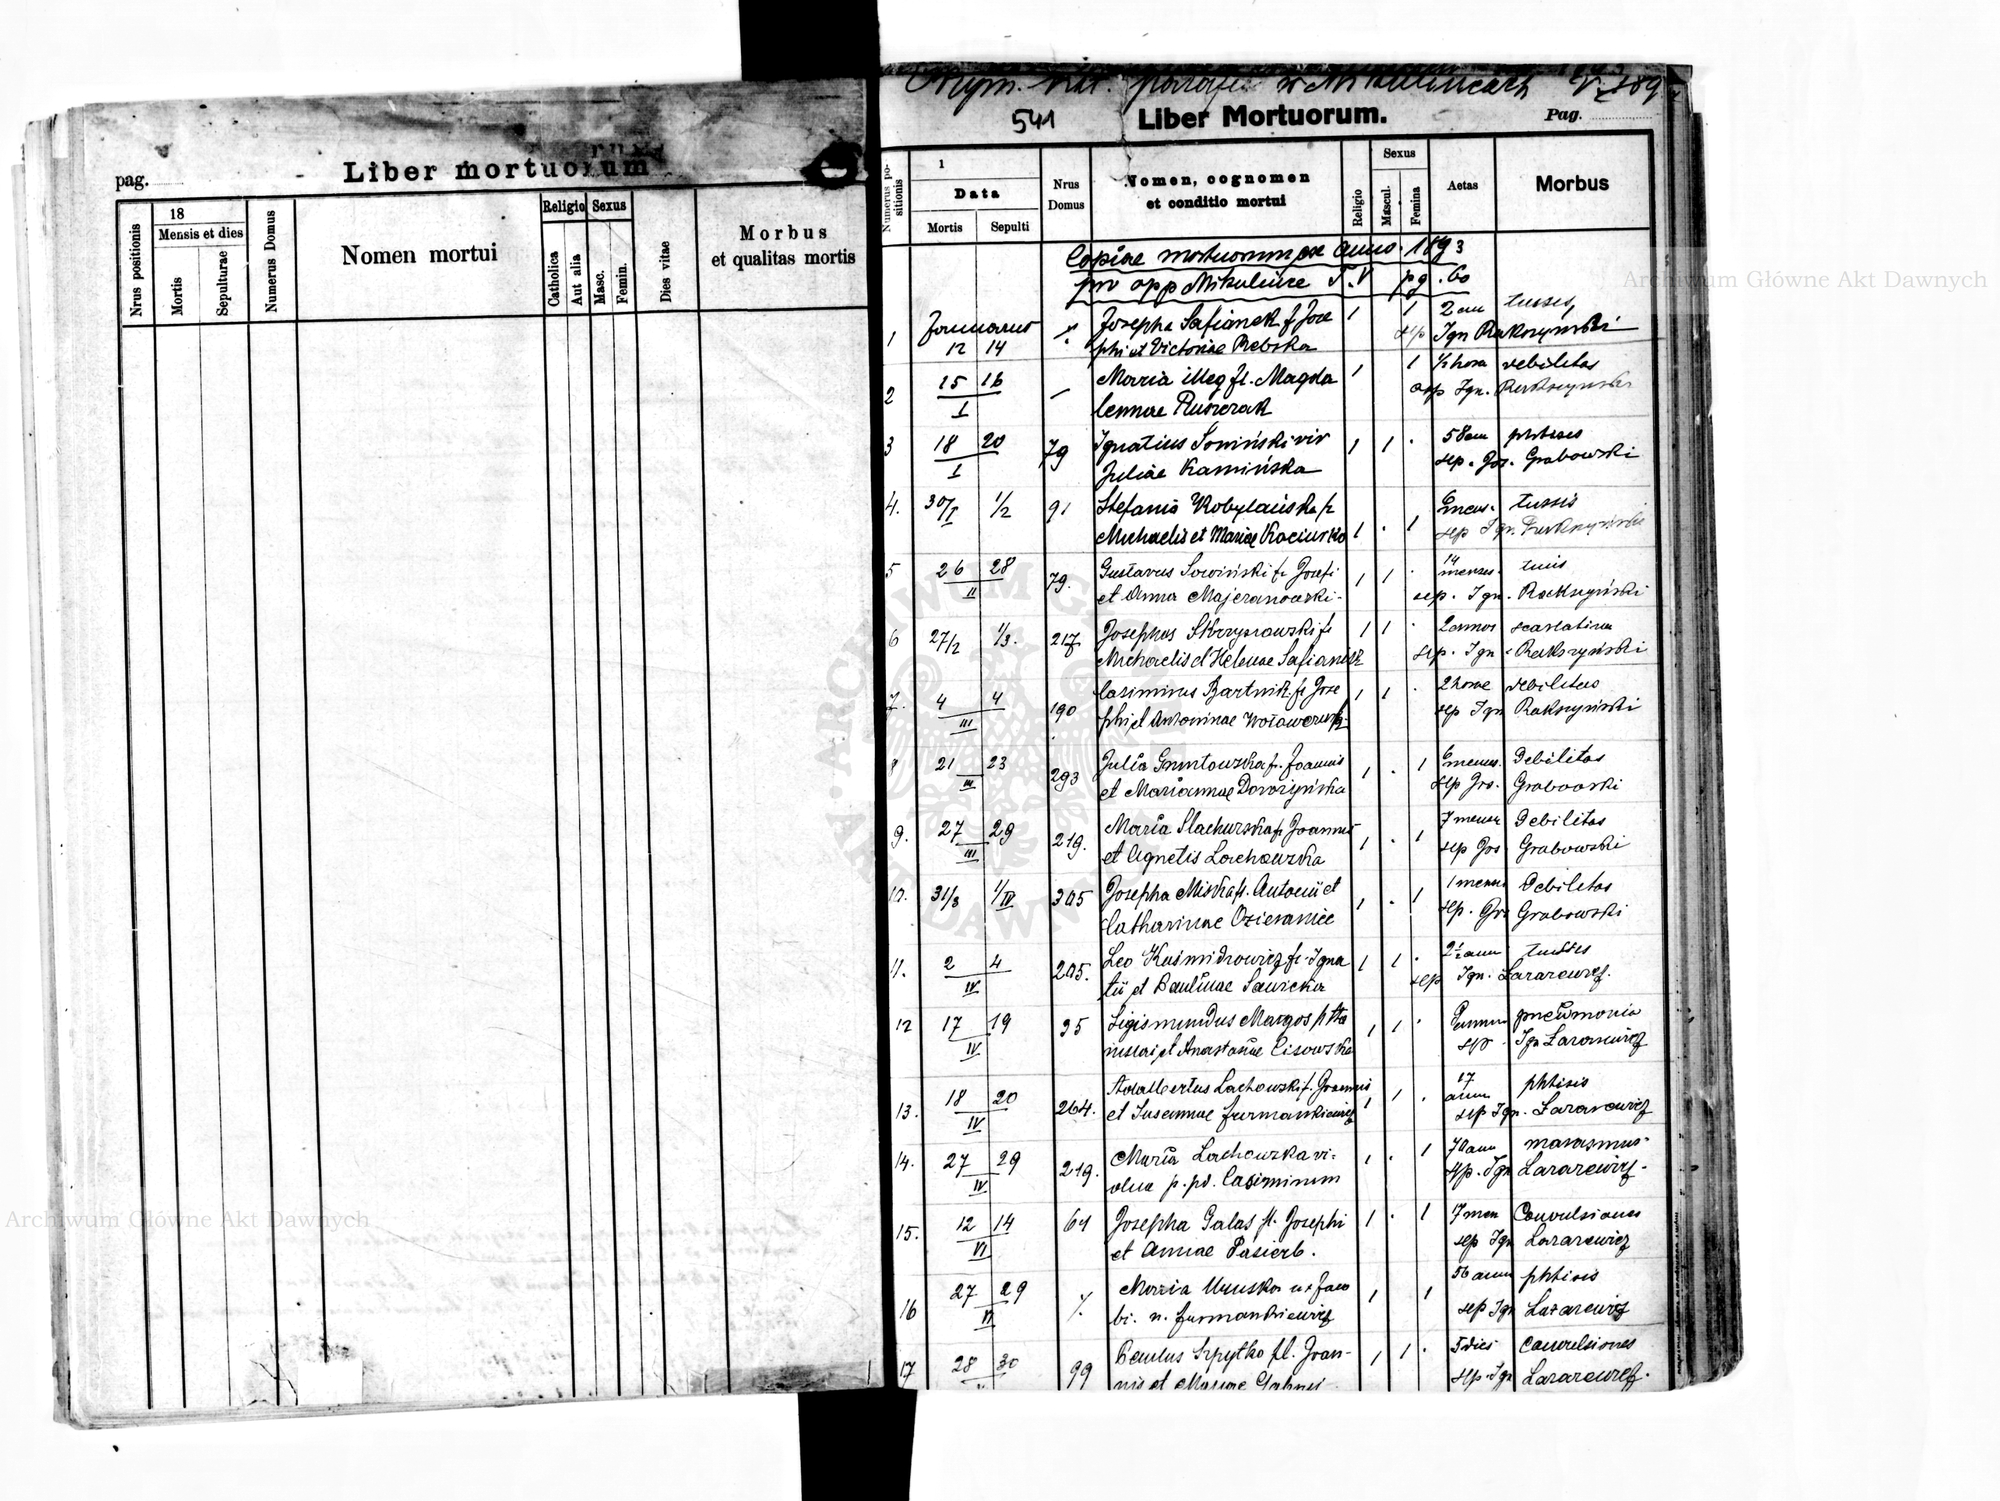 pag.
Liber mortuorum
Nrus positionis
18
Mensis et dies
Mortis
Sepulturae
Numerus Domus
Nomen mortui
Religio
Catholica
Aut alia
Sexus
Masc.
Femin.
Dies vitae
Morbus
et qualitas mortis
541
Liber Mortuorum.
Pag.
Numerus positionis
1
Data
Mortis
Sepulti
Nrus
Domus
Nomen, cognomen
et conditio mortui
Religio
Sexus
Mascul.
Femina
Aetas
Morbus
Copiae mortuorum ex anno 1893
pro opp Mikulińce T. V pg. 60
1 Januarius Josepha Safianek f Jose 1 1 2 ann tussis
12 14 phi et Victoriae Rebska sep Ign Rakszyński
2 15 16 Maria illeg fl. Magda 1 1 ½ hora debilitas
I lennae Ign.
3 18 20 79 Ignatius Sowiński vir 1 1 58 ann phtisis
I Juliae Kamińska sep. Jos. Grabowski
4. 30/I 1/2 91 Stefania Kobylańska f 6 mens. tussis
Michaelis et Mariae 1 1 sep Ign.
5 26 28 79. Gustavus Sowiński f. Josefi 1 1 14 menses tussis
II et Anna Majeranowski sep. Ign. Rakszyński
6 27/2 1/3. 217 Josephus Skrzyszowski f 1 1 2 annos scarlatina
Michaelis et Helenae Safianek sep. Ign. Rakszyński
7. 4 4 190 Casimirus Bartnik f. Jose 1 1 2 horae debilitas
III phi et Antoninae sep Ign Rakszyński
8 21 23 293 Julia Gruntowska f. Joannis 1 1 6 mens. Debilitas
III et Mariannae sep Jos. Grabowski
9. 27 29 219. Maria Stachurska f. Joannis 1 1 7 mens Debilitas
III et Agnetis Lachowska sep Jos Grabowski
10. 31/3 1/IV 305 Josepha Miska f. Antonii et 1 1 1 mens Debilitas
Catharinae sep. Jos Grabowski
11. 2 4 205. Leo Kuśmidrowicz f. Igna 1 1 2½ ann tussis
IV tii et Paulinae Sawicka sep Ign. Lazarewicz.
12 17 19 35 Sigismundus Margos 1 1 pneumonia
IV et Anastasiae Cisowska sep Ign Lazarewicz
13. 18 20 264. Adalbertus Lachowski f. Joannis 1 1 17 annu phtisis
IV et Susannae Furmankiewicz sep Ign. Lazarewicz
14. 27 29 219. Maria Lachowska vi- 1 1 70 ann marasmus
IV dua p. pd. Casimirum sep. Ign Lazarewicz
15. 12 14 64 Josepha Galas fl. Josephi 1 1 7 men Convulsiones
VI et Annae Pasierb. sep Ign Lazarewicz
16 27 29 Maria ux Jaco 1 1 56 ann phtisis
VI bi. n. Furmankiewicz sep Ign Lazarewicz
17 28 30 99 Paulus Szpytko fl. Joan- 1 1 5 dies convulsiones
nis et Mariae sep. Ign Lazarewicz.
Archiwum Główne Akt Dawnych
Archiwum Główne Akt Dawnych